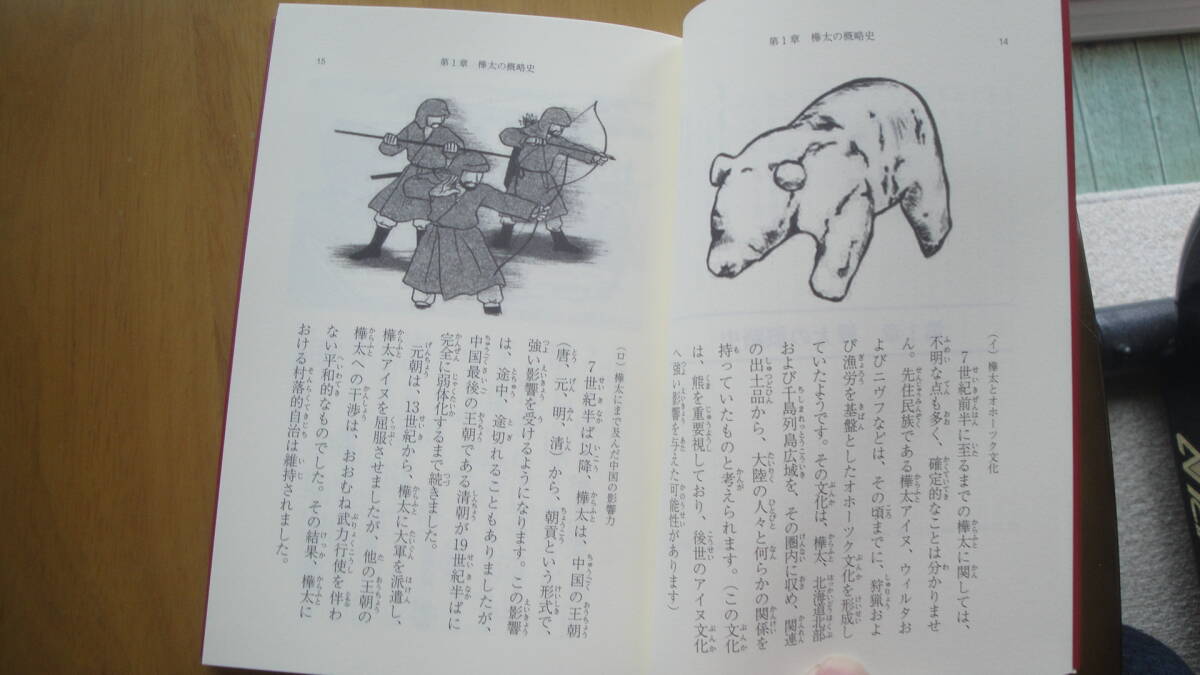 第1章　樺太の概略史
14
（イ）樺太とオホーツク文化
7世紀前半に至るまでの樺太に関しては、
不明な点も多く、確定的なことは分かりませ
ん。先住民族である樺太アイヌ、ウィルタお
よびニヴフなどは、その頃までに、狩猟およ
び漁労を基盤としたオホーツク文化を形成し
ていたようです。その文化は、樺太、北海道北部
および千島列島広域を、その圏内に収め、関連
の出土品から、大陸の人々と何らかの関係を
持っていたものと考えられます。（この文化
は、熊を重要視しており、後世のアイヌ文化
へ強い影響を与えた可能性があります）
第1章　樺太の概略史
15
（ロ）樺太にまで及んだ中国の影響力
7世紀半ば以降、樺太は、中国の王朝
（唐、元、明、清）から、朝貢という形式で、
強い影響を受けるようになります。この影響
は、途中、途切れることもありましたが、
中国最後の王朝である清朝が19世紀半ばに
完全に弱体化するまで続きました。
元朝は、13世紀から、樺太に大軍を派遣し、
樺太アイヌを屈服させましたが、他の王朝の
樺太への干渉は、おおむね武力行使を伴わ
ない平和的なものでした。その結果、樺太に
おける村落的自治は維持されました。